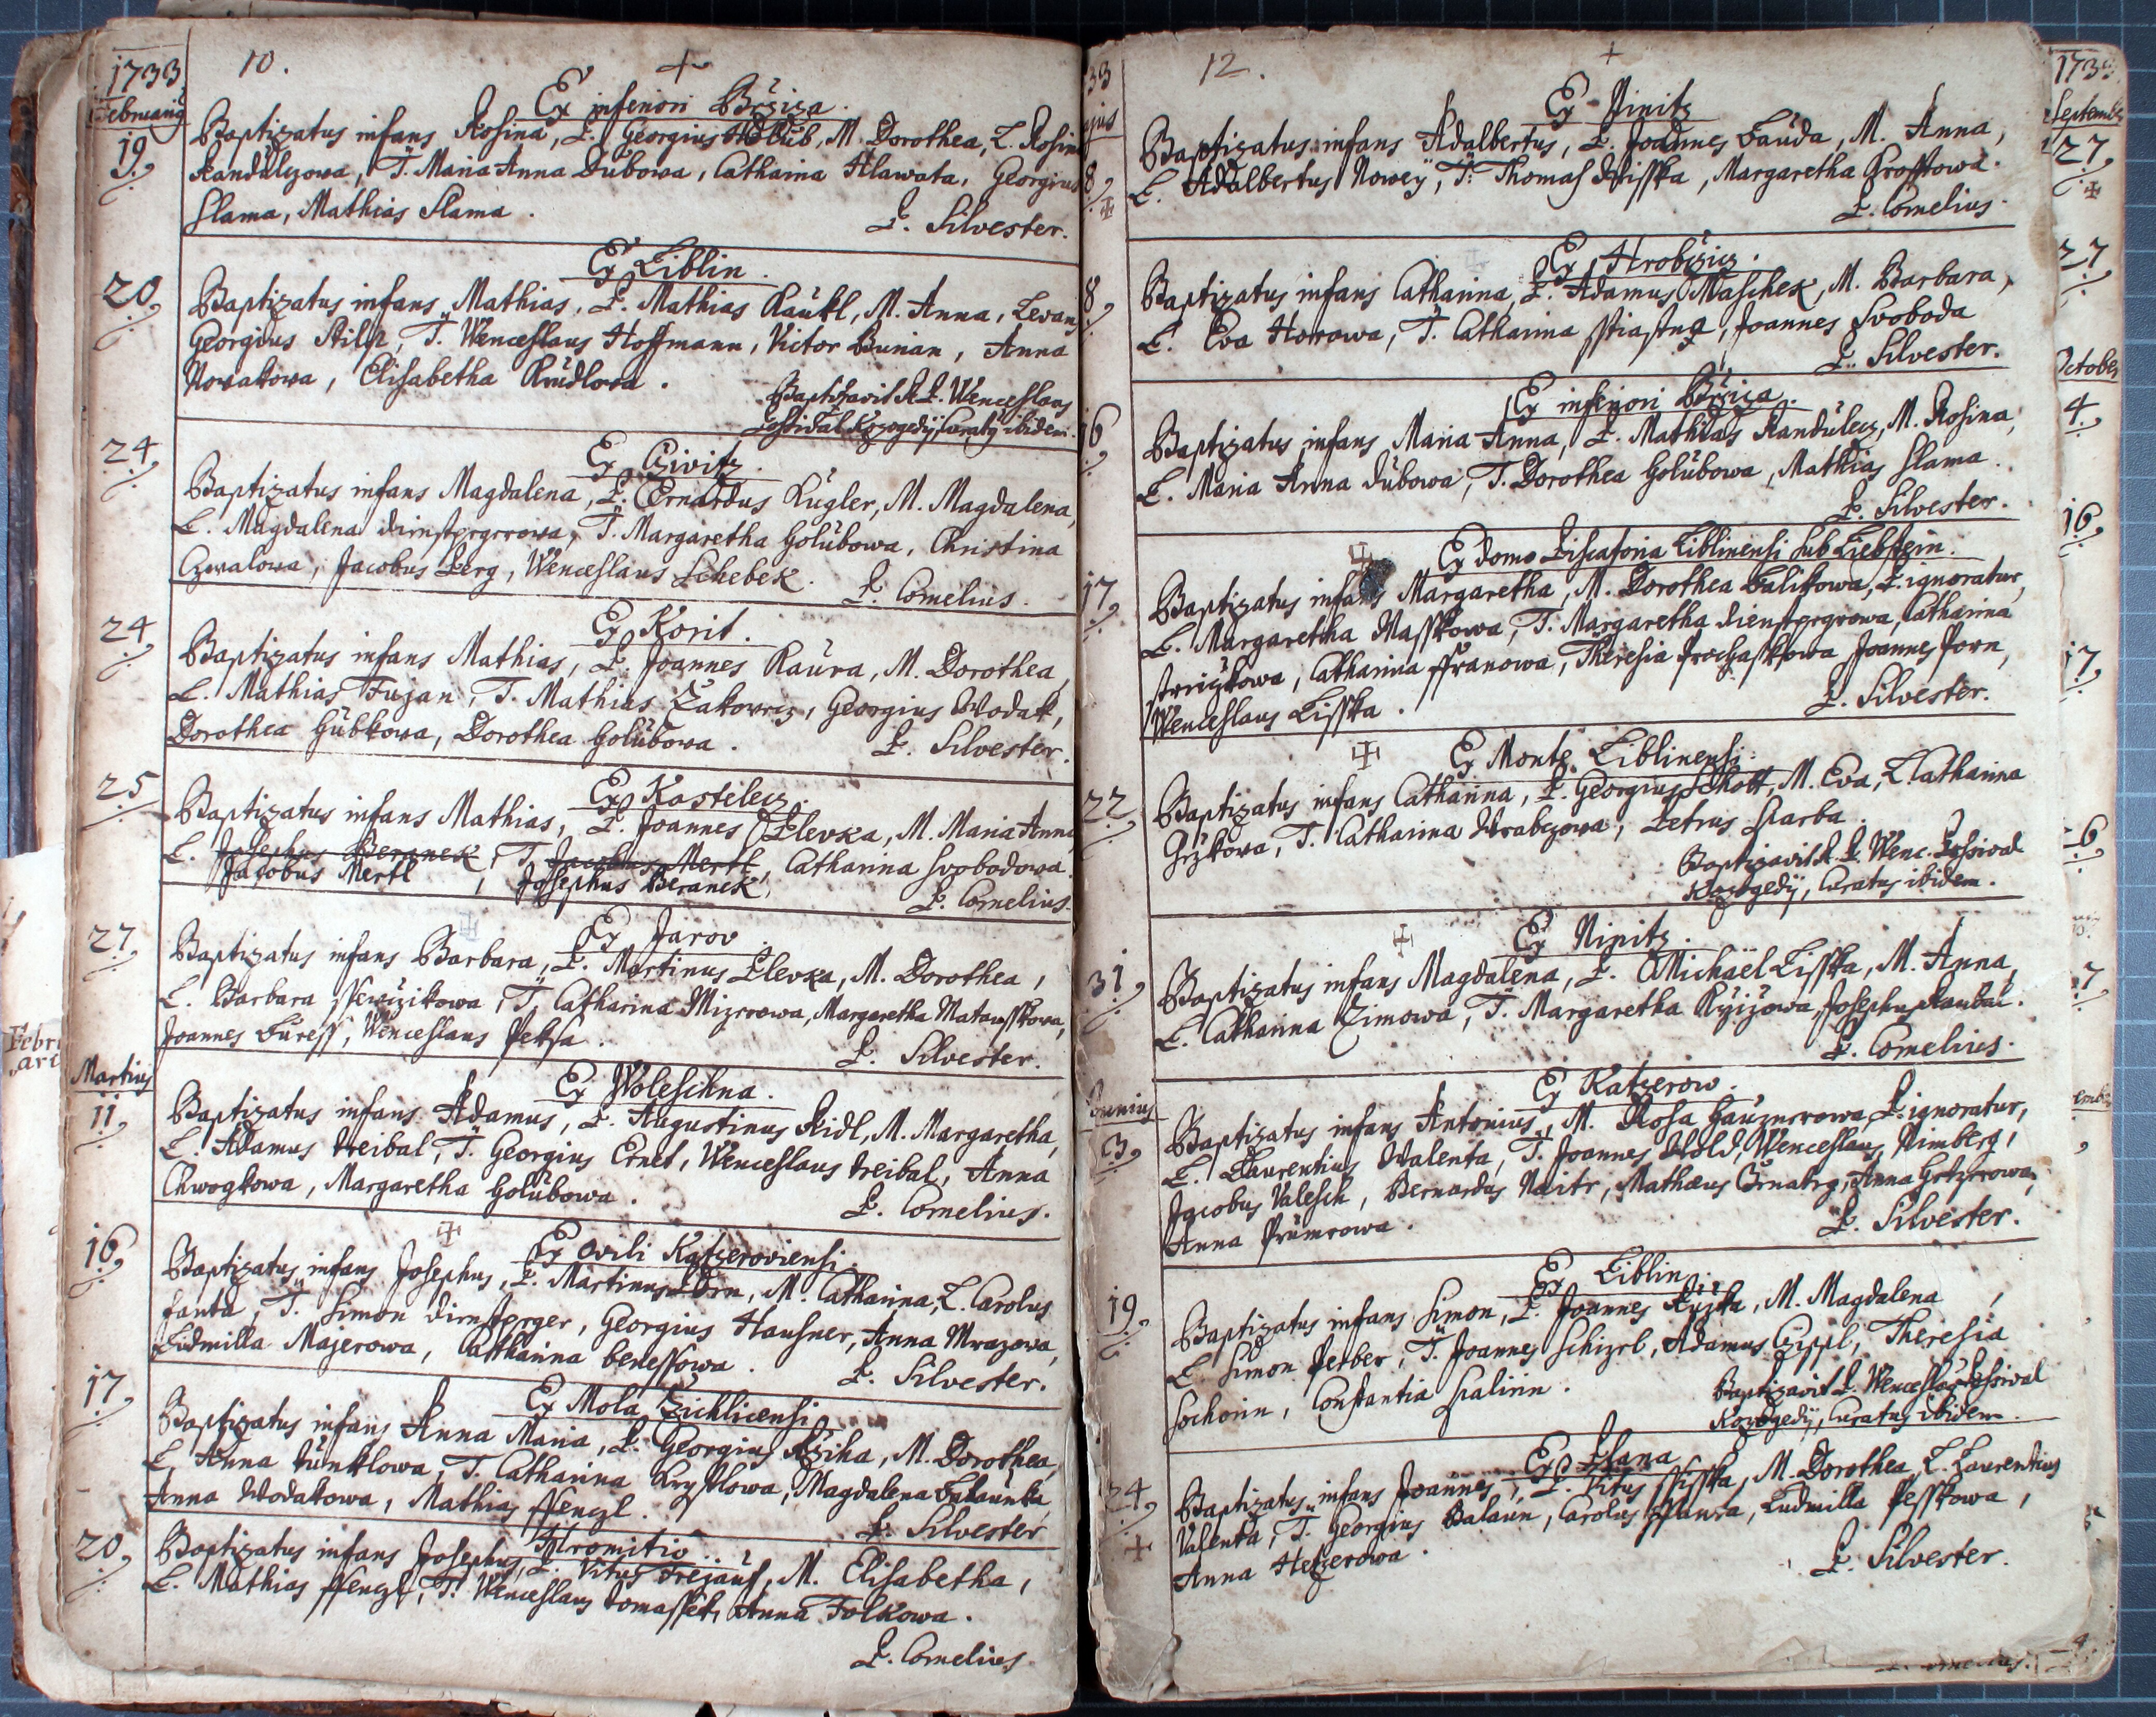 1733
10.
Februarius
Ex inferiori Bržiza.
19.
Baptizatus infans Rosina, P. Georgius Holub, M. Dorothea, L. Rosina
Kandülezowa, T. Maria Anna Dubowa, Catharina Hlawata, Georgius
Slama, Mathias Slama.
P. Silvester.
Ex Liblin.
20.
Baptizatus infans Mathias, P. Mathias Raükl, M. Anna, Levans
Georgius Stilp, T. Wenceslaus Hoffmann, Victor Bunian, Anna
Nowakowa, Elisabetha Rudlowa.
Baptizavit A. P. Wenceslaus
Kozogedÿ Curatus ibidem.
24.
Baptizatus infans Magdalena, P. Ernardus Kugler, M. Magdalena,
L. Magdalena, T. Margaretha Holubowa, Christina
Czwalowa, Jacobus Perg, Wenceslaus Schebek.
P. Cornelius.
Ex Korit.
24.
Baptizatus infans Mathias, P. Joannes Kaüra, M. Dorothea,
L. Mathias Fujan, T. Mathias Žakowecz, Georgius Wodak,
Dorothea Hübkowa, Dorothea Golübowa.
P. Silvester.
Ex Kostelecz.
25
Baptizatus infans Mathias, P. Joannes Plevka, M. Maria Anna
L. Josephus Beranek, T. Jacobus Mertl, Catharina Svobodowa.
Jacobus Mertl, Josephus Beranek,
P. Cornelius.
Ex Jarov.
27.
Baptizatus infans Barbara, P. Martinus Plevka, M. Dorothea,
L. Barbara, T. Catharina Mizerowa, Margaretha Matausskowa,
Joannes Buress, Wenceslaus Peksa.
P. Silvester.
Martius
Ex Woleschna.
11.
Baptizatus infans Adamus, P. Augustinus Ridl, M. Margaretha,
L. Adamus Treibal, T. Georgius Ernet, Wenceslaus Treibal, Anna
Chwogkowa, Margaretha Golübowa.
P. Cornelius.
Ex Ovili Katzeroviensi.
16.
Baptizatus infans Josephus, P. Martinus Dorn, M. Catharina, L. Carolus
Fanta, T. Simon Dirnsperger, Georgius Hausner, Anna Mrazowa,
Ludmilla Majerowa, Catharina Benessowa.
P. Silvester.
Ex Mola Zichlicensi
17.
Baptizatus infans Anna Maria, P. Georgius Ržiha, M. Dorothea,
L. Anna Kunklowa, T. Catharina Krystlowa, Magdalena
Anna Wodakowa, Mathias Ffenzl.
P. Silvester
Hromitio
20.
Baptizatus infans Josephus, P. Vitus Trejaüs, M. Elisabetha,
L. Mathias Ffenzl, T. Wenceslaus Tomasset, Anna Folkowa.
P. Cornelius.
12.
Ex Ninitz
8.
Baptizatus infans Adalbertus, P. Joannes Bauda, M. Anna,
L. Adalbertus Nowey, T. Thomas Wisska, Margaretha Krosskowa.
P. Cornelius.
Ex Hrobczicz.
8.
Baptizatus infans Catharina, P. Adamus Maschek, M. Barbara,
L. Eva Horowa, T. Catharina, Joannes Svoboda
P. Silvester.
Ex inferiori Bržiza.
16
Baptizatus infans Maria Anna, P. Mathias Kandülecz, M. Rosina,
L. Maria Anna Dübowa, T. Dorothea Golübowa, Mathias Slama.
P. Silvester.
Ex domo Piscatoria Liblinensi sub Liebstein.
17.
Baptizatus infans Margaretha, M. Dorothea Balikowa, P. ignoratur,
L. Margaretha Wasskowa, T. Margaretha, Catharina
Catharina Ffranowa, Theresia Prochaskowa Joannes Porn,
Wenceslaus Lisska.
P. Silvester.
Ex Monte Liblinensi.
22.
Baptizatus infans Catharina, P. Georgius Schott, M. Eva, L. Catharina
T. Catharina Wrabezowa, Petrus Skarba.
Baptizavit A. P. Wenc. Possival
Kozogedÿ, Curatus ibidem.
Ex Ninitz.
31.
Baptizatus infans Magdalena, P. Michaël Lisska, M. Anna,
L. Catharina Zimowa, T. Margaretha, Josephus Raubal.
P. Cornelius.
Junius
Ex Katzerow.
3.
Baptizatus infans Antonius, M. Rosa, P. ignoratur,
L. Laurentius Walenta, T. Joannes Wold, Wenceslaus Nimberg,
Jacobus Walesch, Bernardus, Mathæus, Anna
Anna Prümrowa.
P. Silvester.
Ex Liblin.
19.
Baptizatus infans Simon, P. Joannes Ružka, M. Magdalena,
L. Simon Ferber, T. Joannes Schizrl, Adamus Cippl, Theresia
Sochorin, Constantia Skalirin.
Baptizavit P. Wenceslaus Possival
Kozogedÿ, Curatus ibidem.
Ex Plana
24.
Baptizatus infans Joannes, P. Vitus Ssisska, M. Dorothea, L. Laurentius
Valenta, T. Georgius Balaün, Carolus, Ludmilla Pesskowa,
Anna Hetzerowa.
P. Silvester.
September
27.
27
October
4.
16.
17.